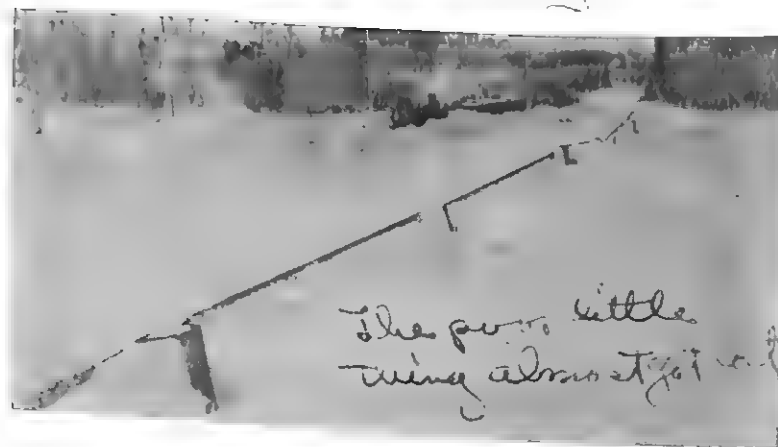 The poor little
thing almost got